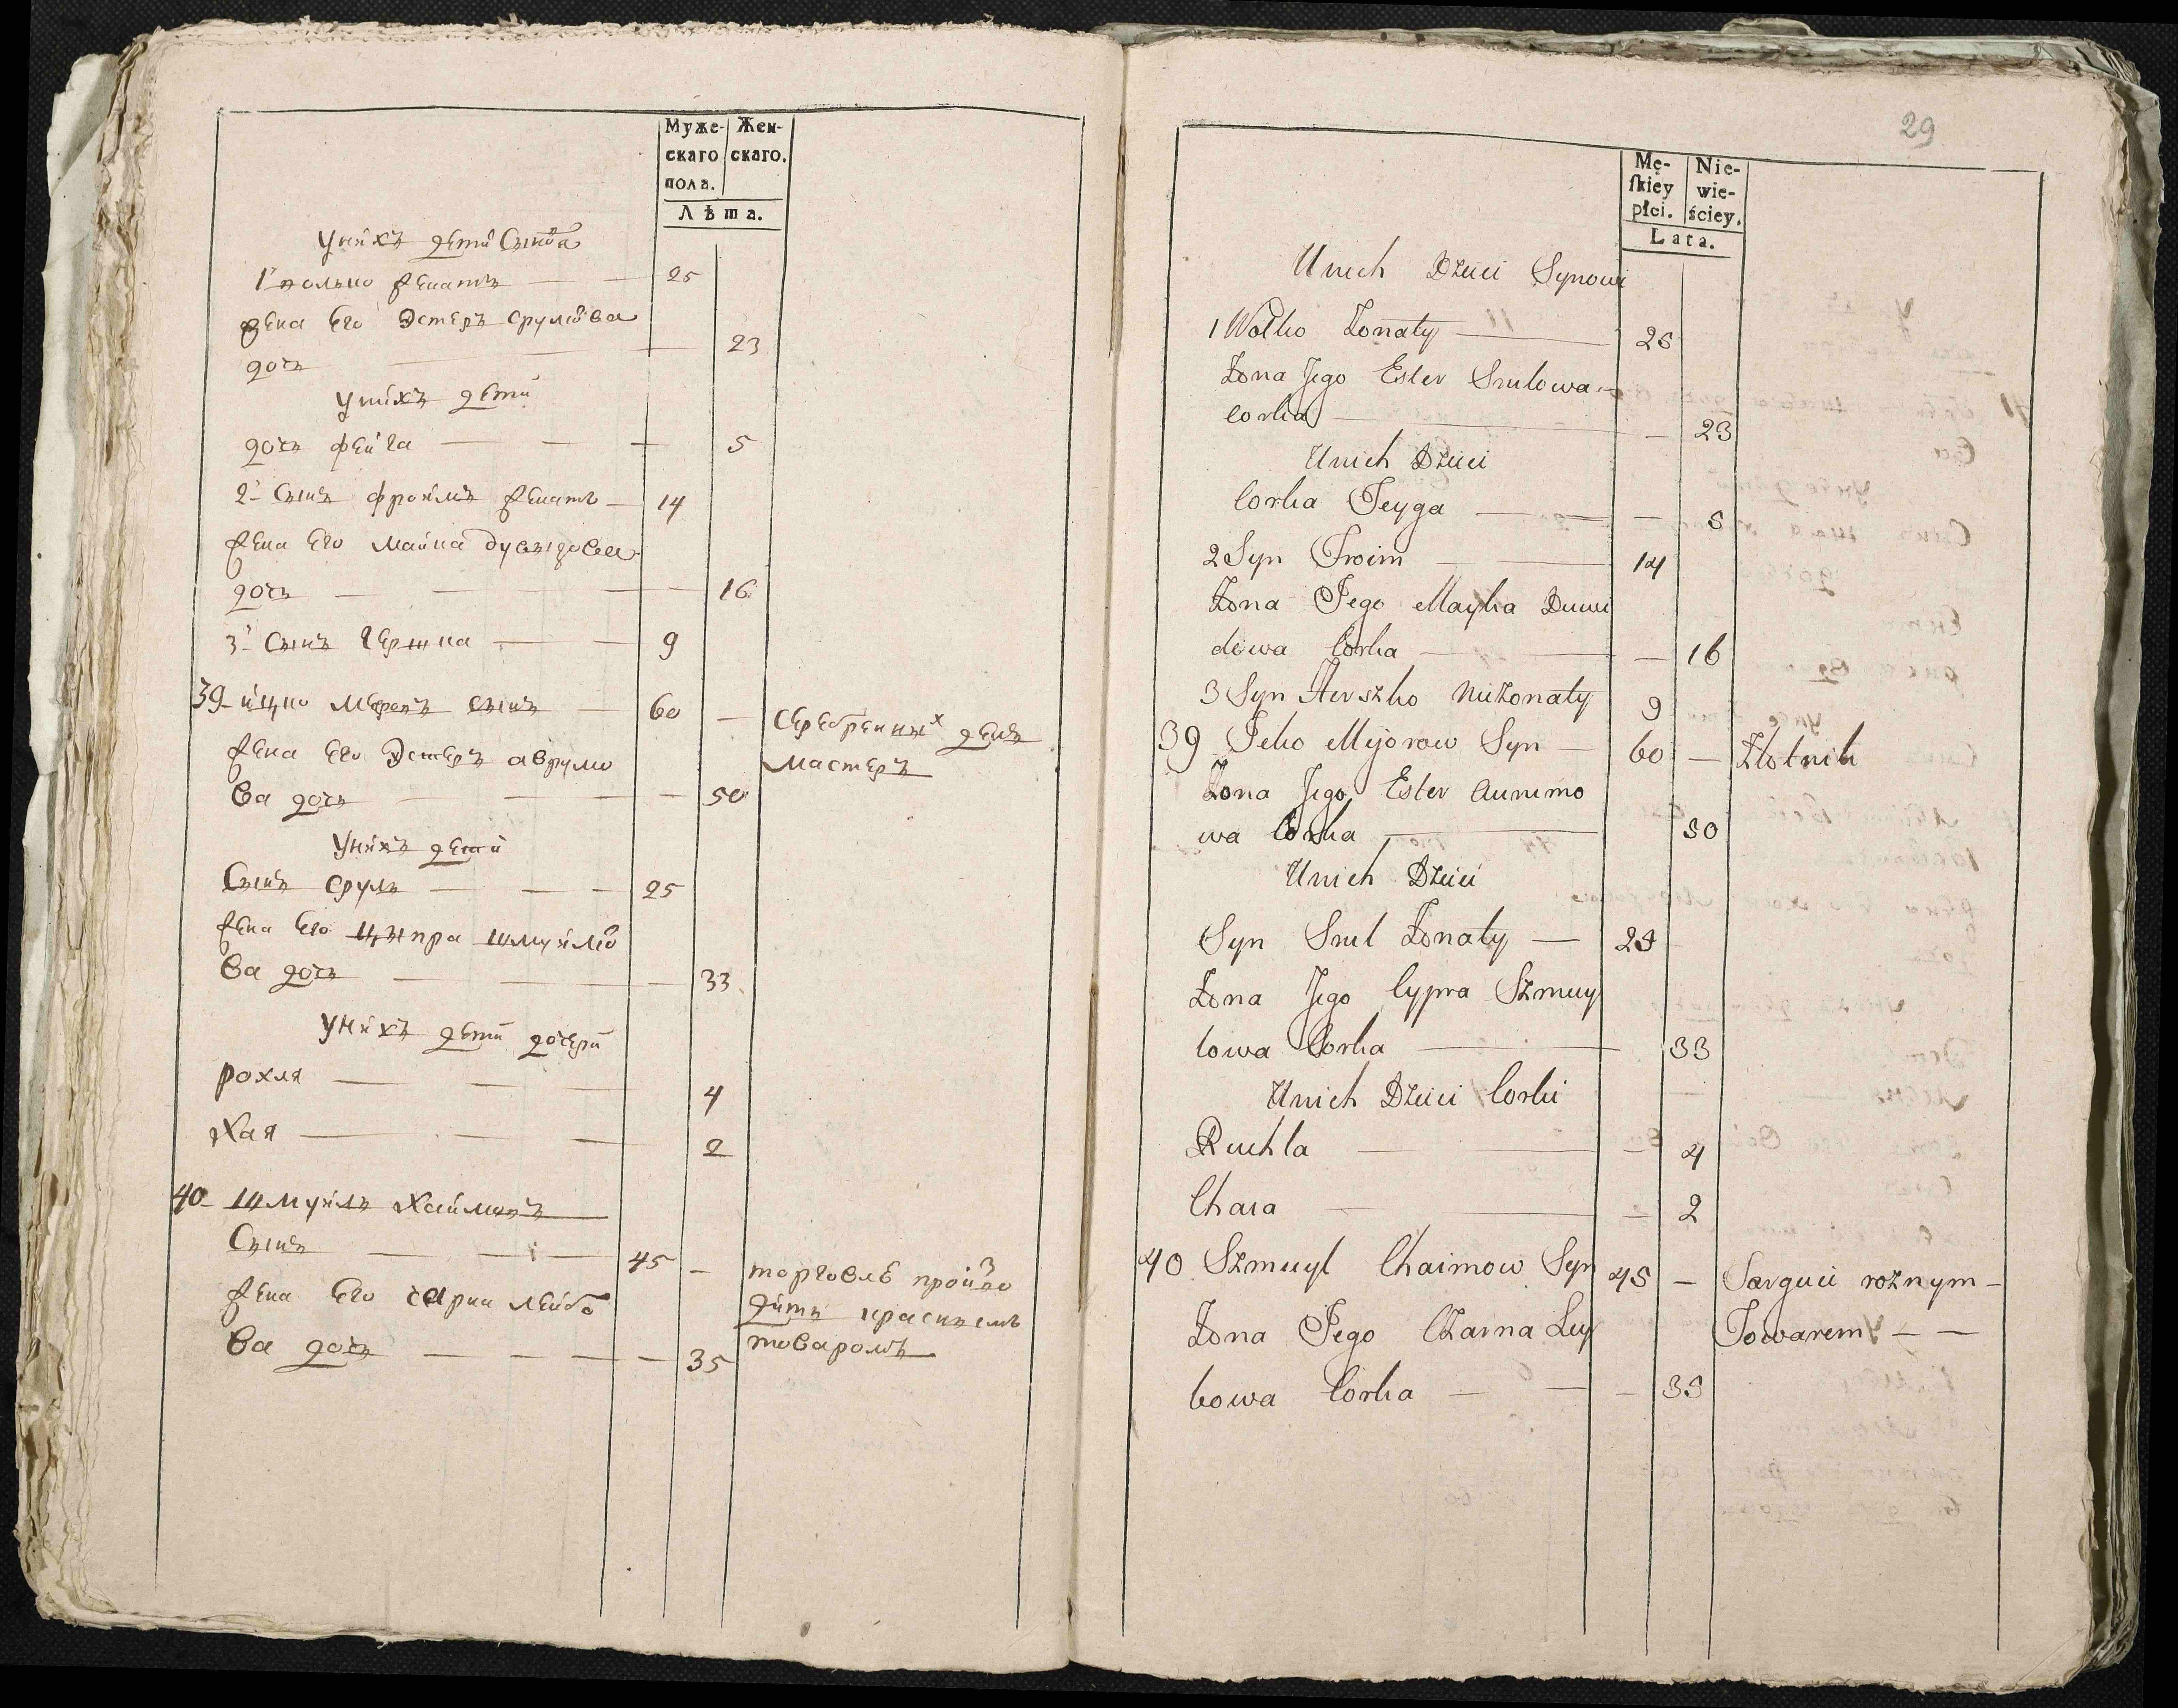 Муже-
скаго
пола.
Жен-
скаго.
Лѣта.
Унихъ дети Сынва
1 волько женатъ — — 25
жена Его Эстеръ срулiова
дочь — — — 23
Унихъ дети
дочь фейга — — — 5
2 Сынъ фроимъ женатъ — 14
жена Его майка дувыдова
дочь — — — — 16
3 Сынъ Гершка — — 9
39 ицко меронъ сынъ — 60 — серебренных дѣлъ
жена Его Эстеръ аврумо мастеръ
ва дочь — — — — 50
Унихъ дети
Сынъ сруль — — — 25
жена Его ципра шмуйлiо
ва дочь — — — 33
Унихъ дети дочери
рохля — — — 4
Хая — — — 2
40 шмуйль Хаймовъ
Сынъ — — — 45 — торговлѣ произво
жена Его чарна лейбо дитъ краснымъ
ва дочь — — — — 35 товаромъ
29
Mę-
ſkiey
płci.
Nie-
wie-
ściey.
Lata.
Unich Dzieci Synowi
1 Wolko Żonaty — 25
Żona Jego Ester Srulowa —
Corka — — 23
Unich Dzieci
Corka Feyga — — — 5
2 Syn Froim — — 14
Żona Jego Mayka Duwi
dowa Corka — — — 16
3 Syn Herszko nieżonaty 9
39 Icko Mejorow Syn — 60 — Złotnik
Żona Jego Ester Aurumo
wa Corka — 50
Unich Dzieci
Syn Srul Żonaty — 25
Żona Jego Cypra Szmuy
lowa Corka — 33
Unich Dzieci Corki
Ruchla — — — 4
Chaia — — — 2
40 Szmuyl Chaimow Syn 45 — Targuie rożnym —
Żona Jego Czarna Ley Towarem — —
bowa Corka — — — 35